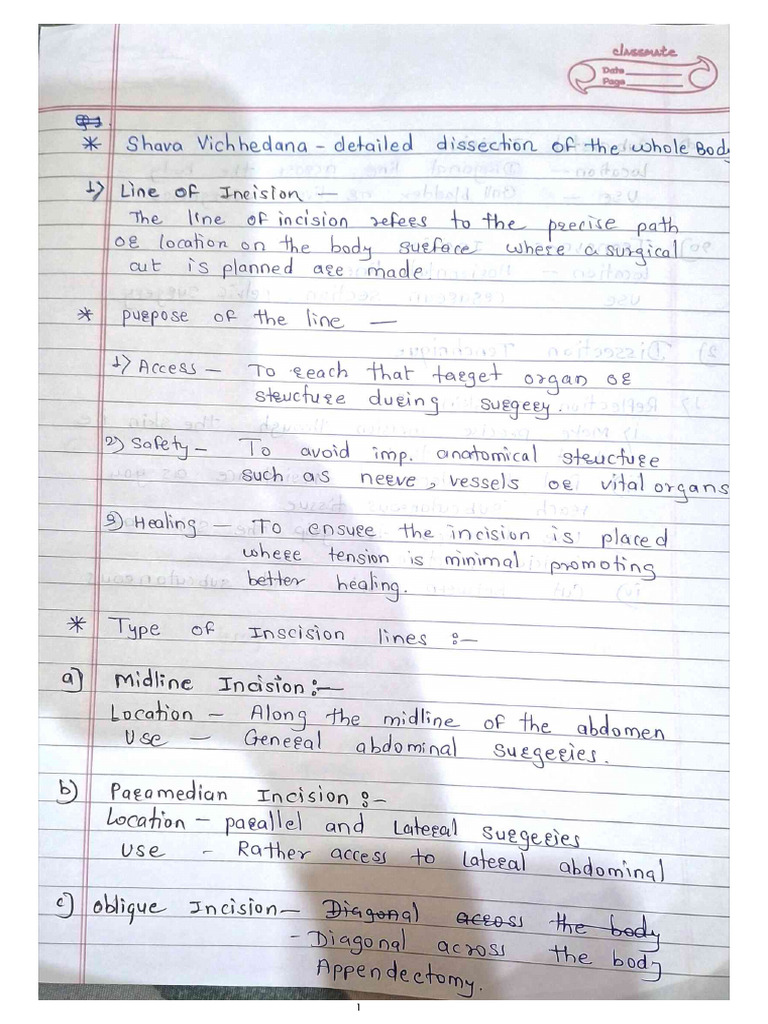 classmate
Date
Page
* Shava Vichhedana - detailed dissection of the whole Body
1) Line of Incision -
The line of incision refers to the precise path
or location on the body surface where a surgical
cut is planned are made.
* purpose of the line -
1) Access - To reach that target organ or
structure during surgery.
2) Safety - To avoid imp. anatomical structure
such as nerve, vessels or vital organs
3) Healing - To ensure the incision is placed
where tension is minimal promoting
better healing.
* Type of Inscision lines :-
a) Midline Incision :-
Location - Along the midline of the abdomen
Use - General abdominal surgeries.
b) Paramedian Incision :-
Location - parallel and Lateral surgeries
Use - Rather access to lateral abdominal
c) oblique Incision - Diagonal across the body
- Diagonal across the body
Appendectomy.
1